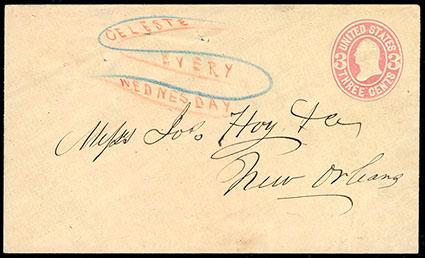 CELESTE
EVERY
WEDNESDAY
UNITED STATES
THREE CENTS
3 3
Messrs Jos. Hoy & Co
New Orleans